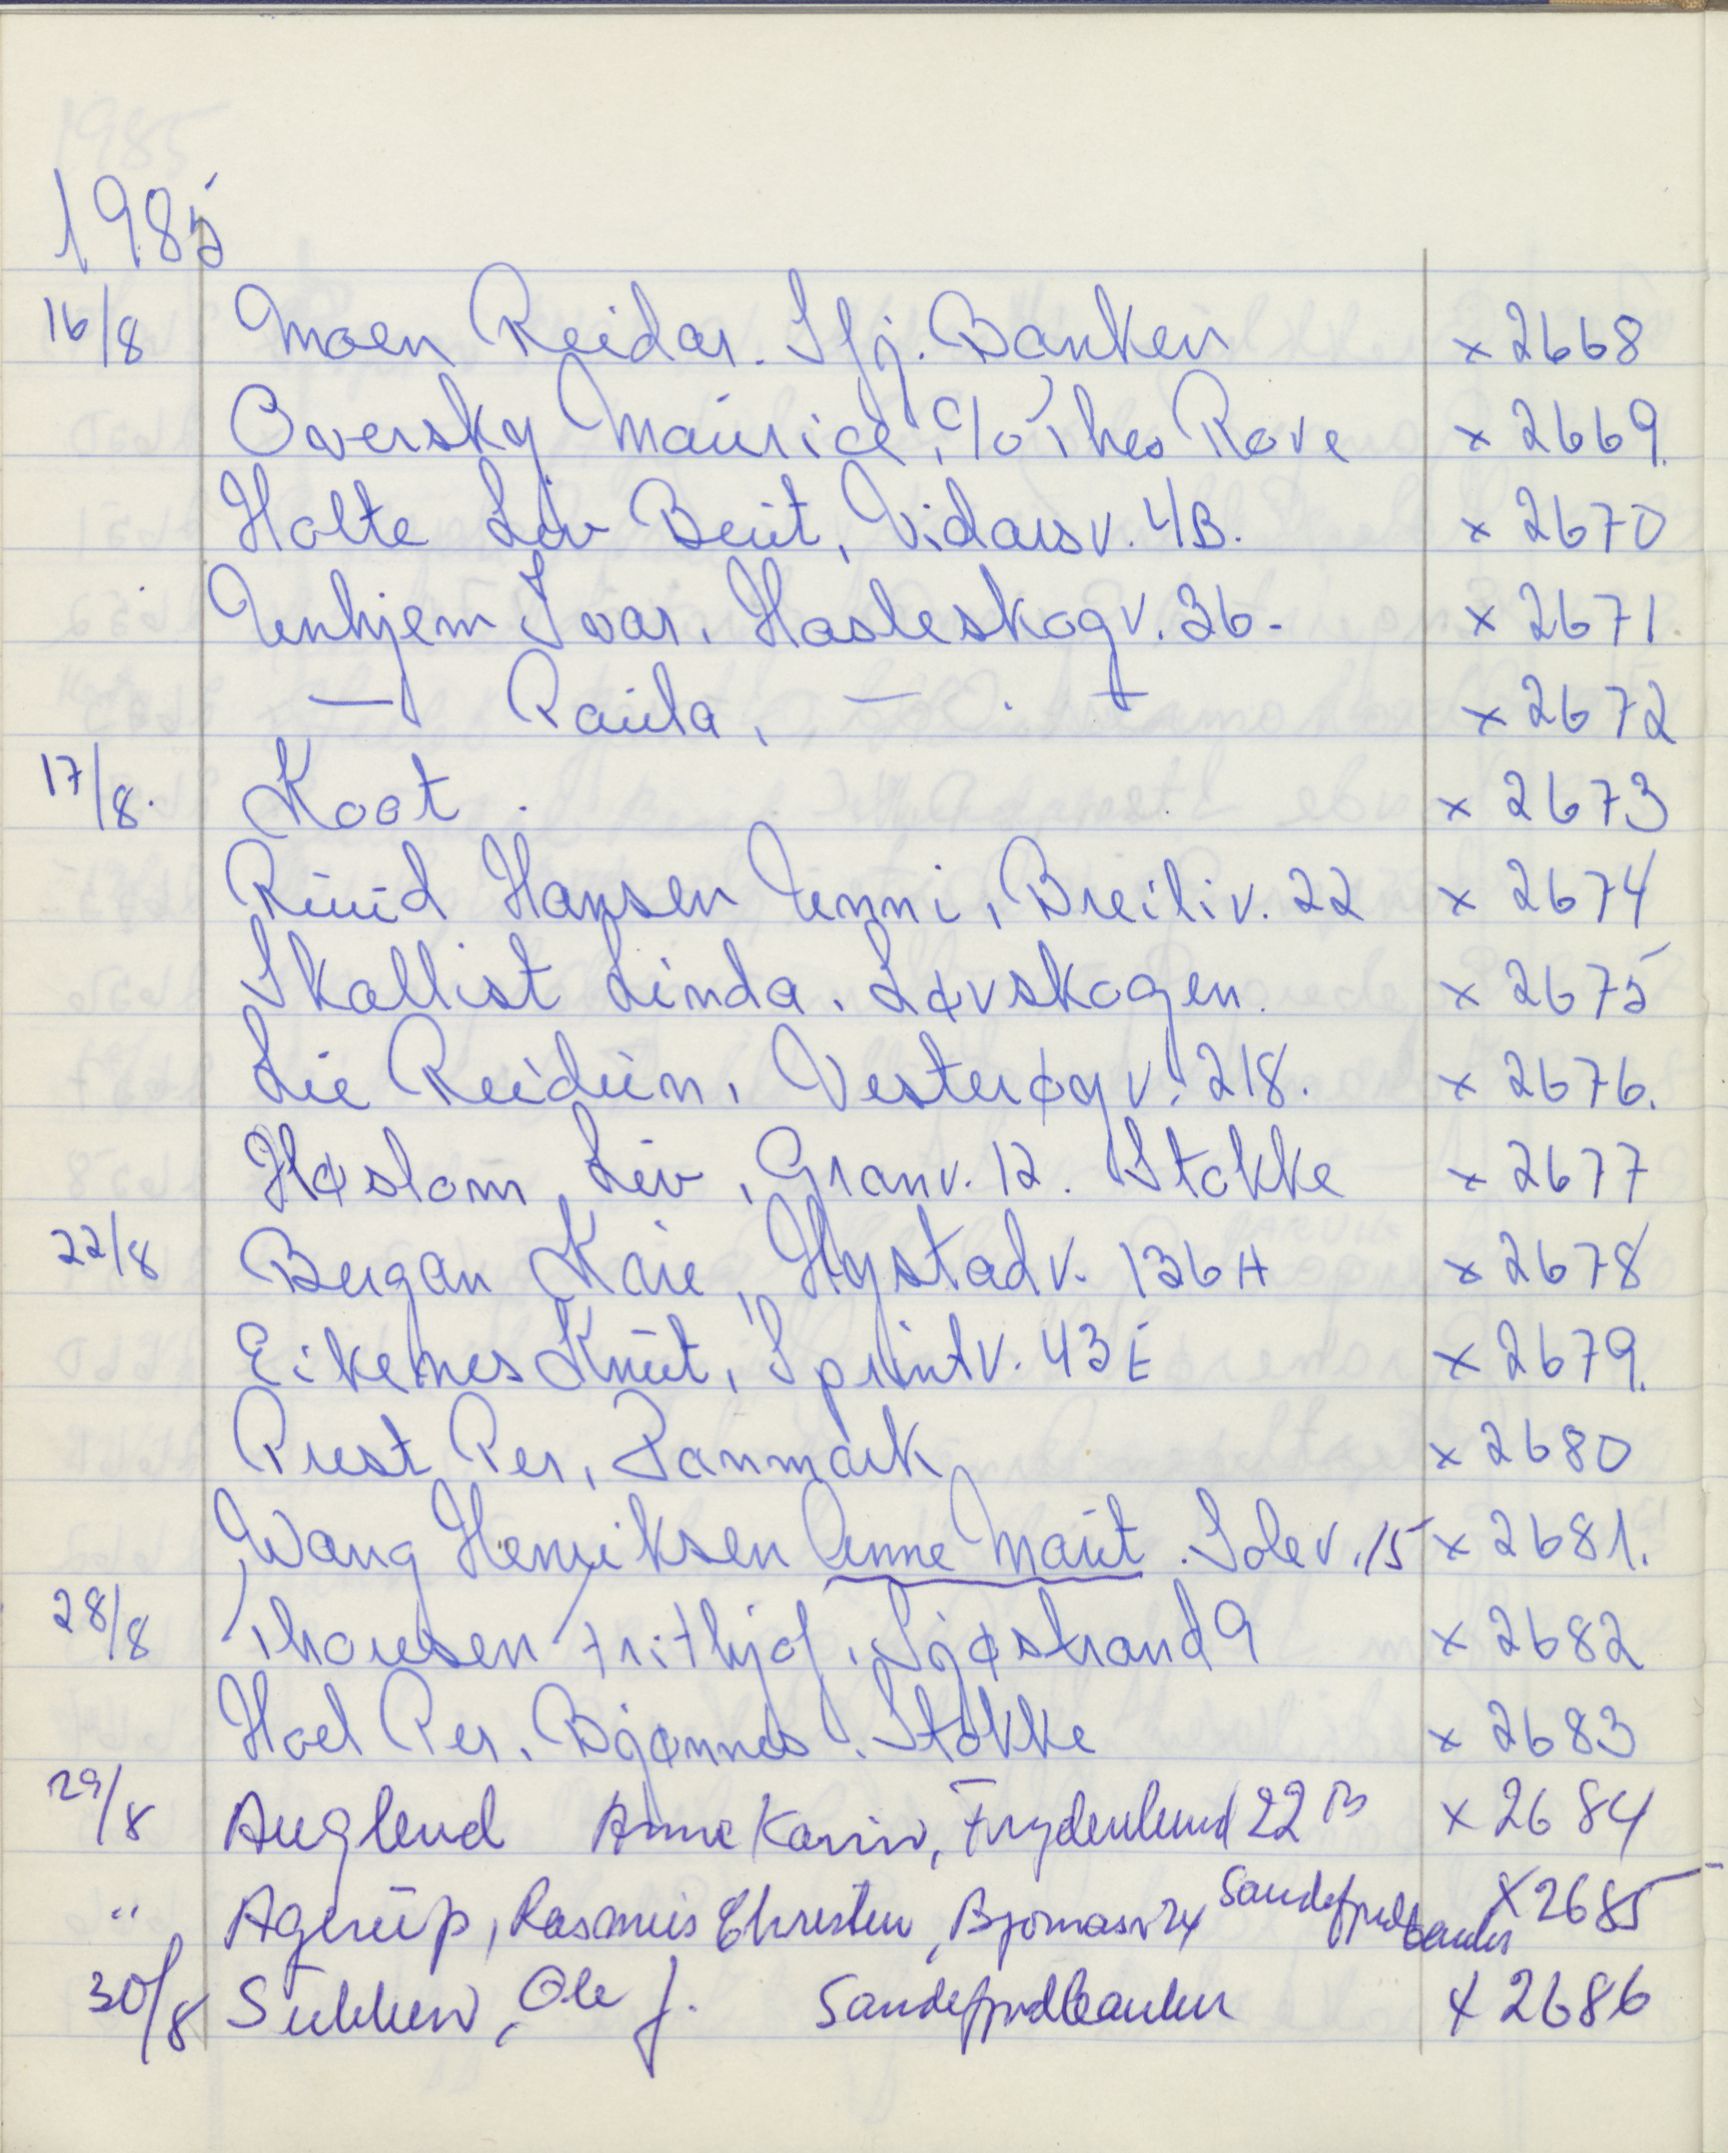 1985
16/8 Moen Reidar. Sfj. Banken x 2668
Oversky Maurice, c/o Theo Rove x 2669.
Holte Liv Berit, Vidarsv. 4B. x 2670
Unhjem Ivar. Hasleskogv. 36. x 2671
— Paula, — . — x 2672
17/8. Koot . x 2673
Ruud Hansen Unni, Breiliv. 22 x 2674
Skallist Linda. Løvskogen. x 2675
Lie Reidun, Vesterøyv. 218. x 2676.
Høslom Liv, Granv. 12. Stokke x 2677
22/8 Bergan Kåre, Hystadv. 136 A x 2678
Eikenes Knut, Sprintv. 43 E x 2679.
Prest Per, Danmark x 2680
Wang Henriksen Anne Marit. Solev. 15 x 2681.
28/8 Thoresen Frithjof. Sjøstrand 9 x 2682
Hoel Per. Bjønnes. Stokke x 2683
29/8 Auglend Anne Karin, Frydenlund 22 B x 2684
" Agerup, Rasmus Christen, 24 Sandefjordbanken x 2685
30/8 Ole J. Sandefjordbanken x 2686